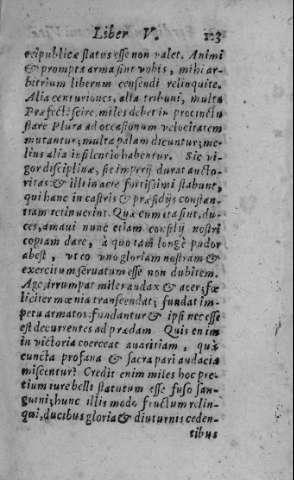 Liber V. 123
reipublicæ status esse non valet. Animi
& prompta arma sint vobis, mihi ar-
bitrium liberum censendi relinquite.
Alia centuriones, alia tribuni, multa
Præfecti scire, miles debet in procinctu
stare Plura ad occasionum velocitatem
mutantur; multa palam dicuntur; me-
lius alia in silentio habentur. Sic vi-
gor disciplinæ, sic imperij durat aucto-
ritas: & illi in acie fortissimi stabunt,
qui hanc in castris & præsidijs constan-
tiam retinuerint. Quæ cum ita sint, du-
ces, amavi nunc etiam consilij nostri
copiam dare, à quo tam longè pudor
abest, ut eo uno gloriam nostram &
exercitum servatum esse non dubitem.
Age, irrumpat miles audax & acer; fœ
liciter mœnia transcendat; fundat im-
petu armatos: fundantur & ipsi: necesse
est decurrentes ad prædam. Quis enim
in victoria coerceat avaritiam, quæ
cuncta profana & sacra pari audacia
miscentur? Credit enim miles hoc pre-
tium iure belli statutum esse fuso san-
guini; hunc illis modo fructum relin-
qui, ducibus gloria & diuturnis ceden-
tibus